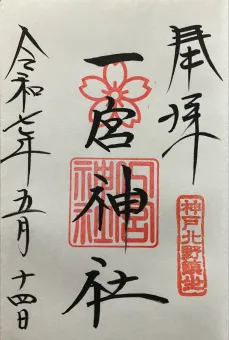 奉拝
神戸北野鎮座
一宮神社
一宮神社
令和七年五月十四日